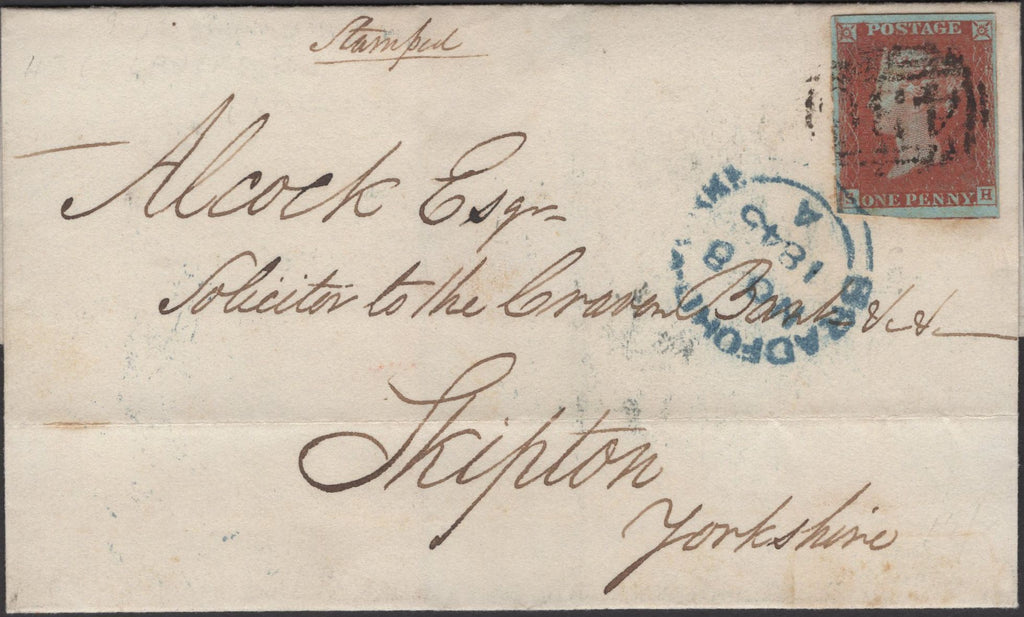 Stamped
POSTAGE
S ONE PENNY H
Alcock Esqr
Solicitor to the Craven Bank &c &c
BRADFORD YORKS
8
A
Skipton
Yorkshire